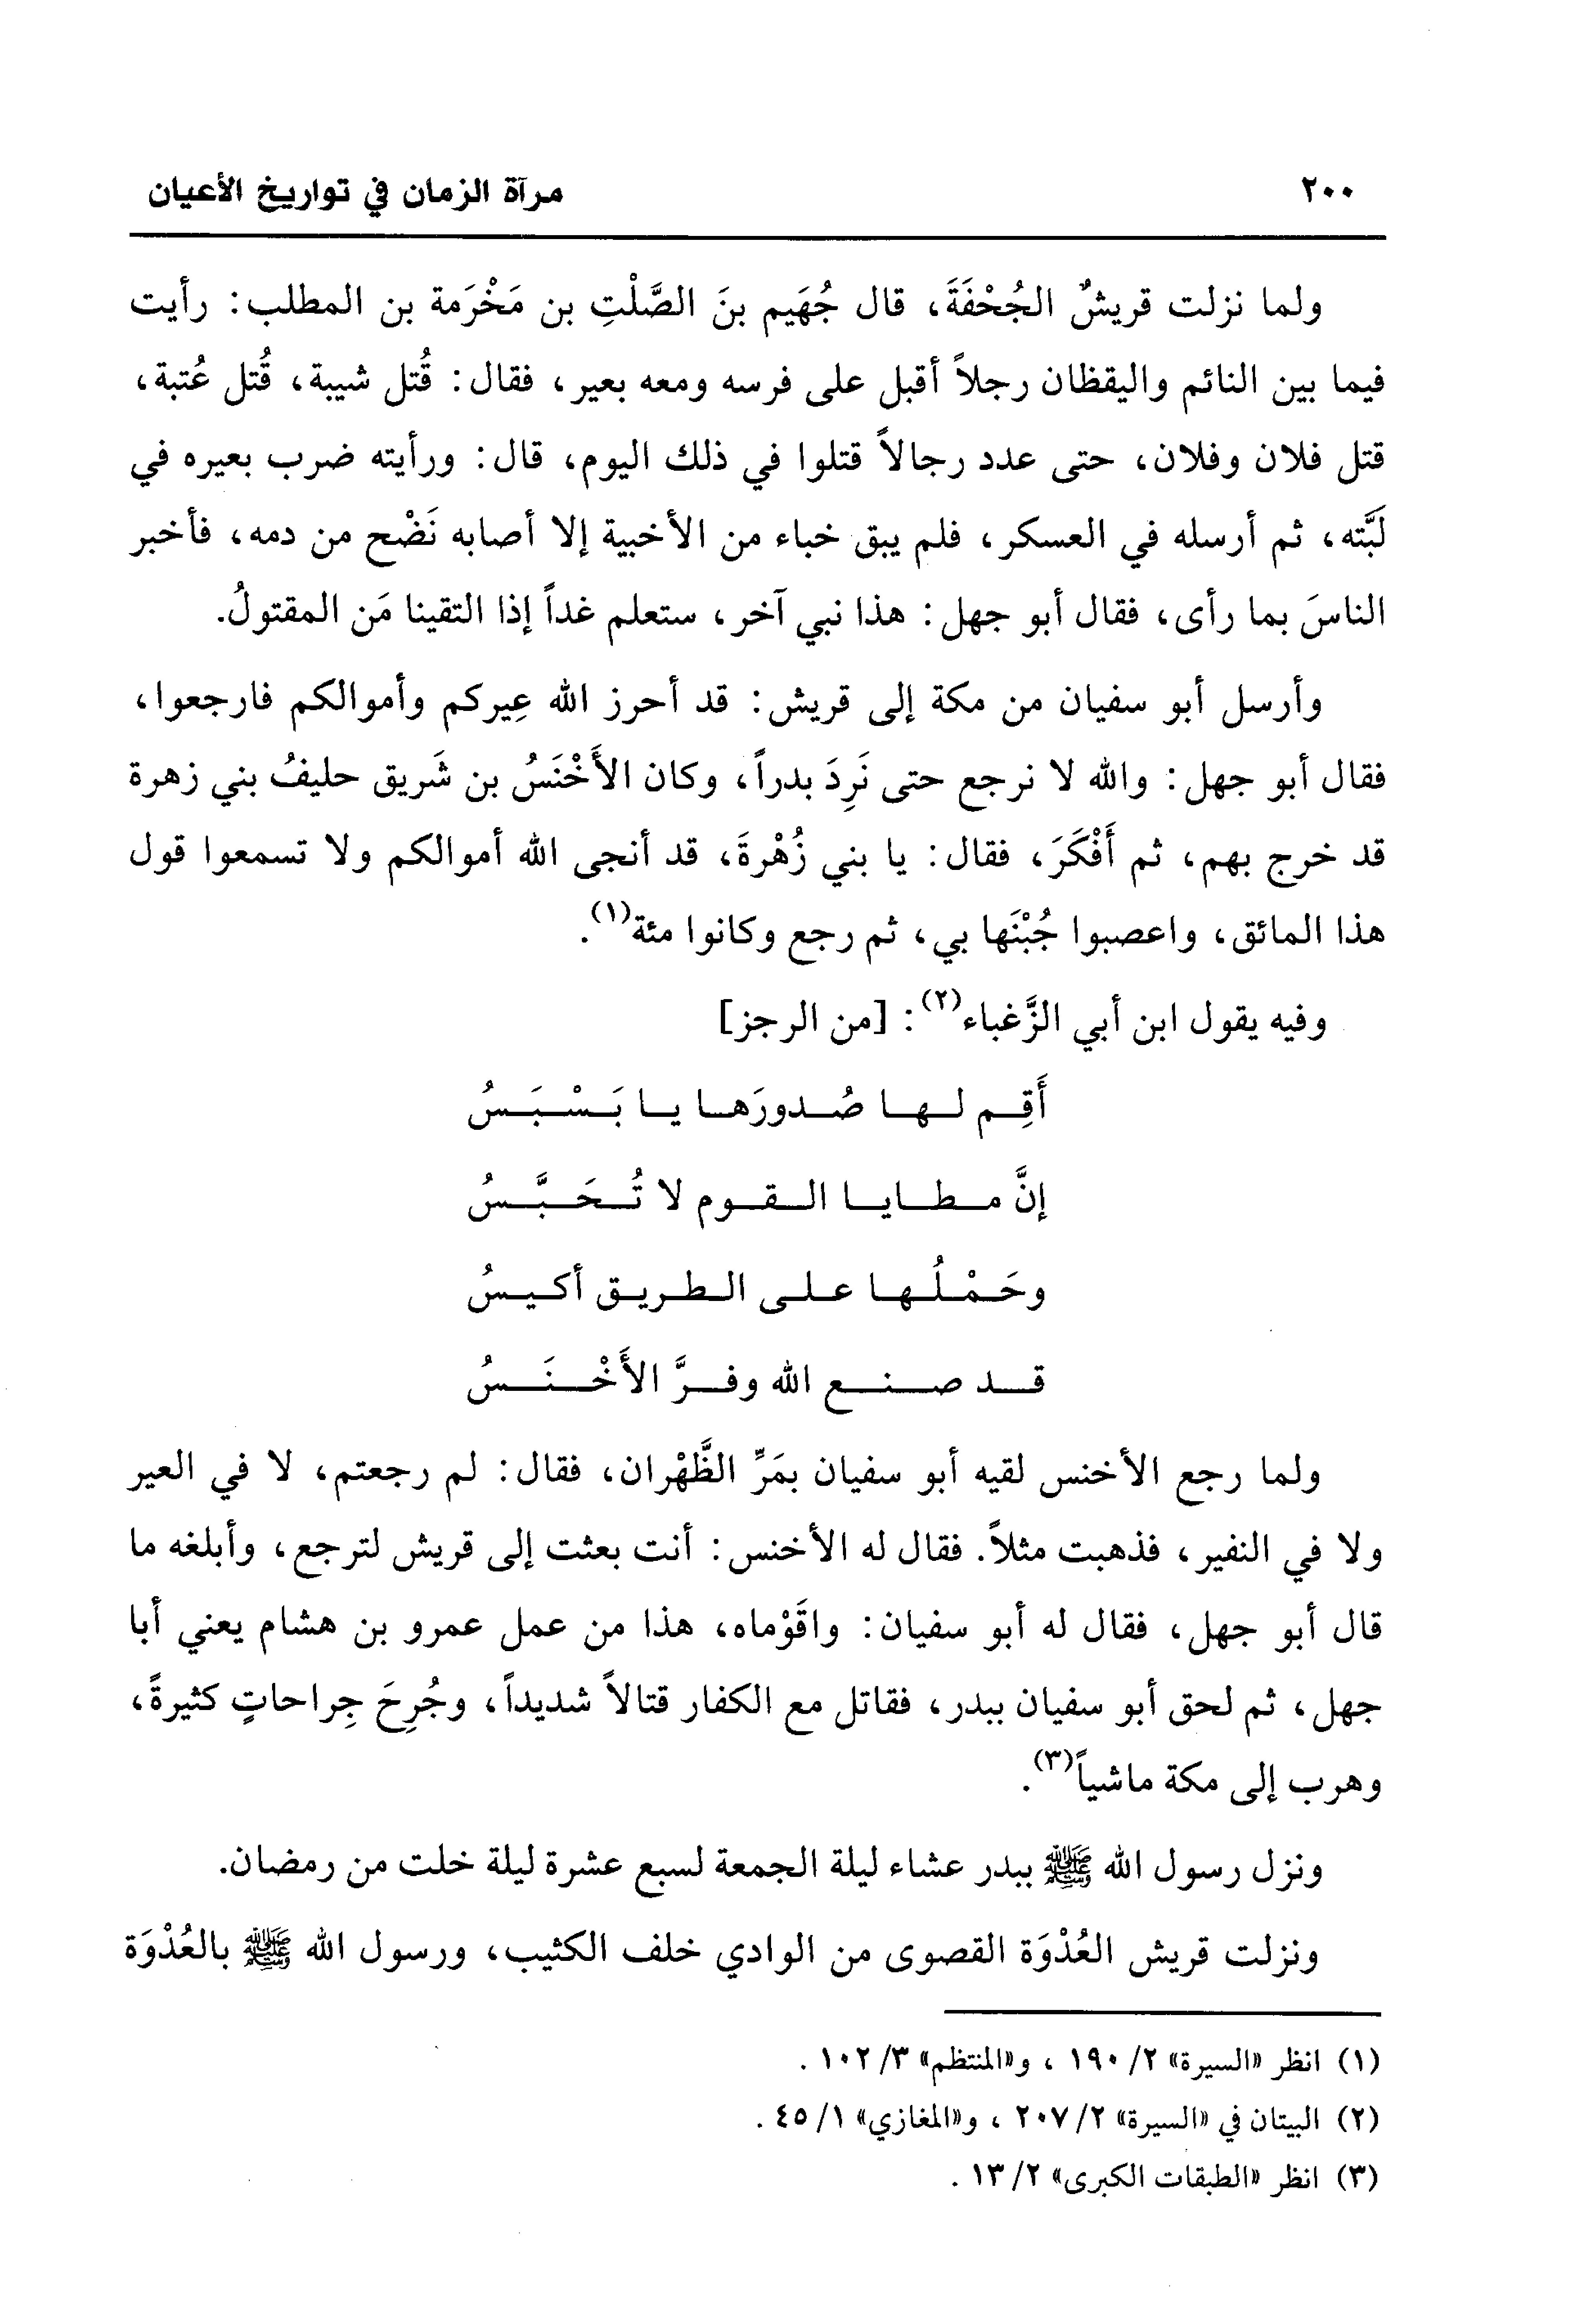 ٢٠٠ مرآة الزمان في تواريخ الأعيان
ولما نزلت قريشٌ الجُحْفَةَ، قال جُهَيم بنَ الصَّلْتِ بن مَخْرَمة بن المطلب: رأيت
فيما بين النائم واليقظان رجلاً أقبل على فرسه ومعه بعير، فقال: قُتل شيبة، قُتل عُتبة،
قتل فلان وفلان، حتى عدد رجالاً قتلوا في ذلك اليوم، قال: ورأيته ضرب بعيره في
لَبَّته، ثم أرسله في العسكر، فلم يبق خباء من الأخبية إلا أصابه نَضْح من دمه، فأخبر
الناسَ بما رأى، فقال أبو جهل: هذا نبي آخر، ستعلم غداً إذا التقينا مَن المقتولُ.
وأرسل أبو سفيان من مكة إلى قريش: قد أحرز الله عِيركم وأموالكم فارجعوا،
فقال أبو جهل: والله لا نرجع حتى نَرِدَ بدراً، وكان الأَخْنَسُ بن شَريق حليفُ بني زهرة
قد خرج بهم، ثم أَفْكَرَ، فقال: يا بني زُهْرةَ، قد أنجى الله أموالكم ولا تسمعوا قول
هذا المائق، واعصبوا جُبْنَها بي، ثم رجع وكانوا مئة(١).
وفيه يقول ابن أبي الزَّغباء(٢): [من الرجز]
أَقِم لها صُدورَها يا بَسْبَسُ
إنَّ مطايا القوم لا تُحَبَّسُ
وحَمْلُها على الطريق أكيسُ
قد صنع الله وفرَّ الأَخْنَسُ
ولما رجع الأخنس لقيه أبو سفيان بمَرِّ الظَّهْران، فقال: لم رجعتم، لا في العير
ولا في النفير، فذهبت مثلاً. فقال له الأخنس: أنت بعثت إلى قريش لترجع، وأبلغه ما
قال أبو جهل، فقال له أبو سفيان: واقَوْماه، هذا من عمل عمرو بن هشام يعني أبا
جهل، ثم لحق أبو سفيان ببدر، فقاتل مع الكفار قتالاً شديداً، وجُرِحَ جِراحاتٍ كثيرةً،
وهرب إلى مكة ماشياً(٣).
ونزل رسول الله ﷺ ببدر عشاء ليلة الجمعة لسبع عشرة ليلة خلت من رمضان.
ونزلت قريش العُدْوَة القصوى من الوادي خلف الكثيب، ورسول الله ﷺ بالعُدْوَة
(١) انظر «السيرة» ٢/ ١٩٠ ، و«المنتظم» ٣/ ١٠٢ .
(٢) البيتان في «السيرة» ٢/ ٢٠٧ ، و«المغازي» ١/ ٤٥ .
(٣) انظر «الطبقات الكبرى» ٢/ ١٣ .